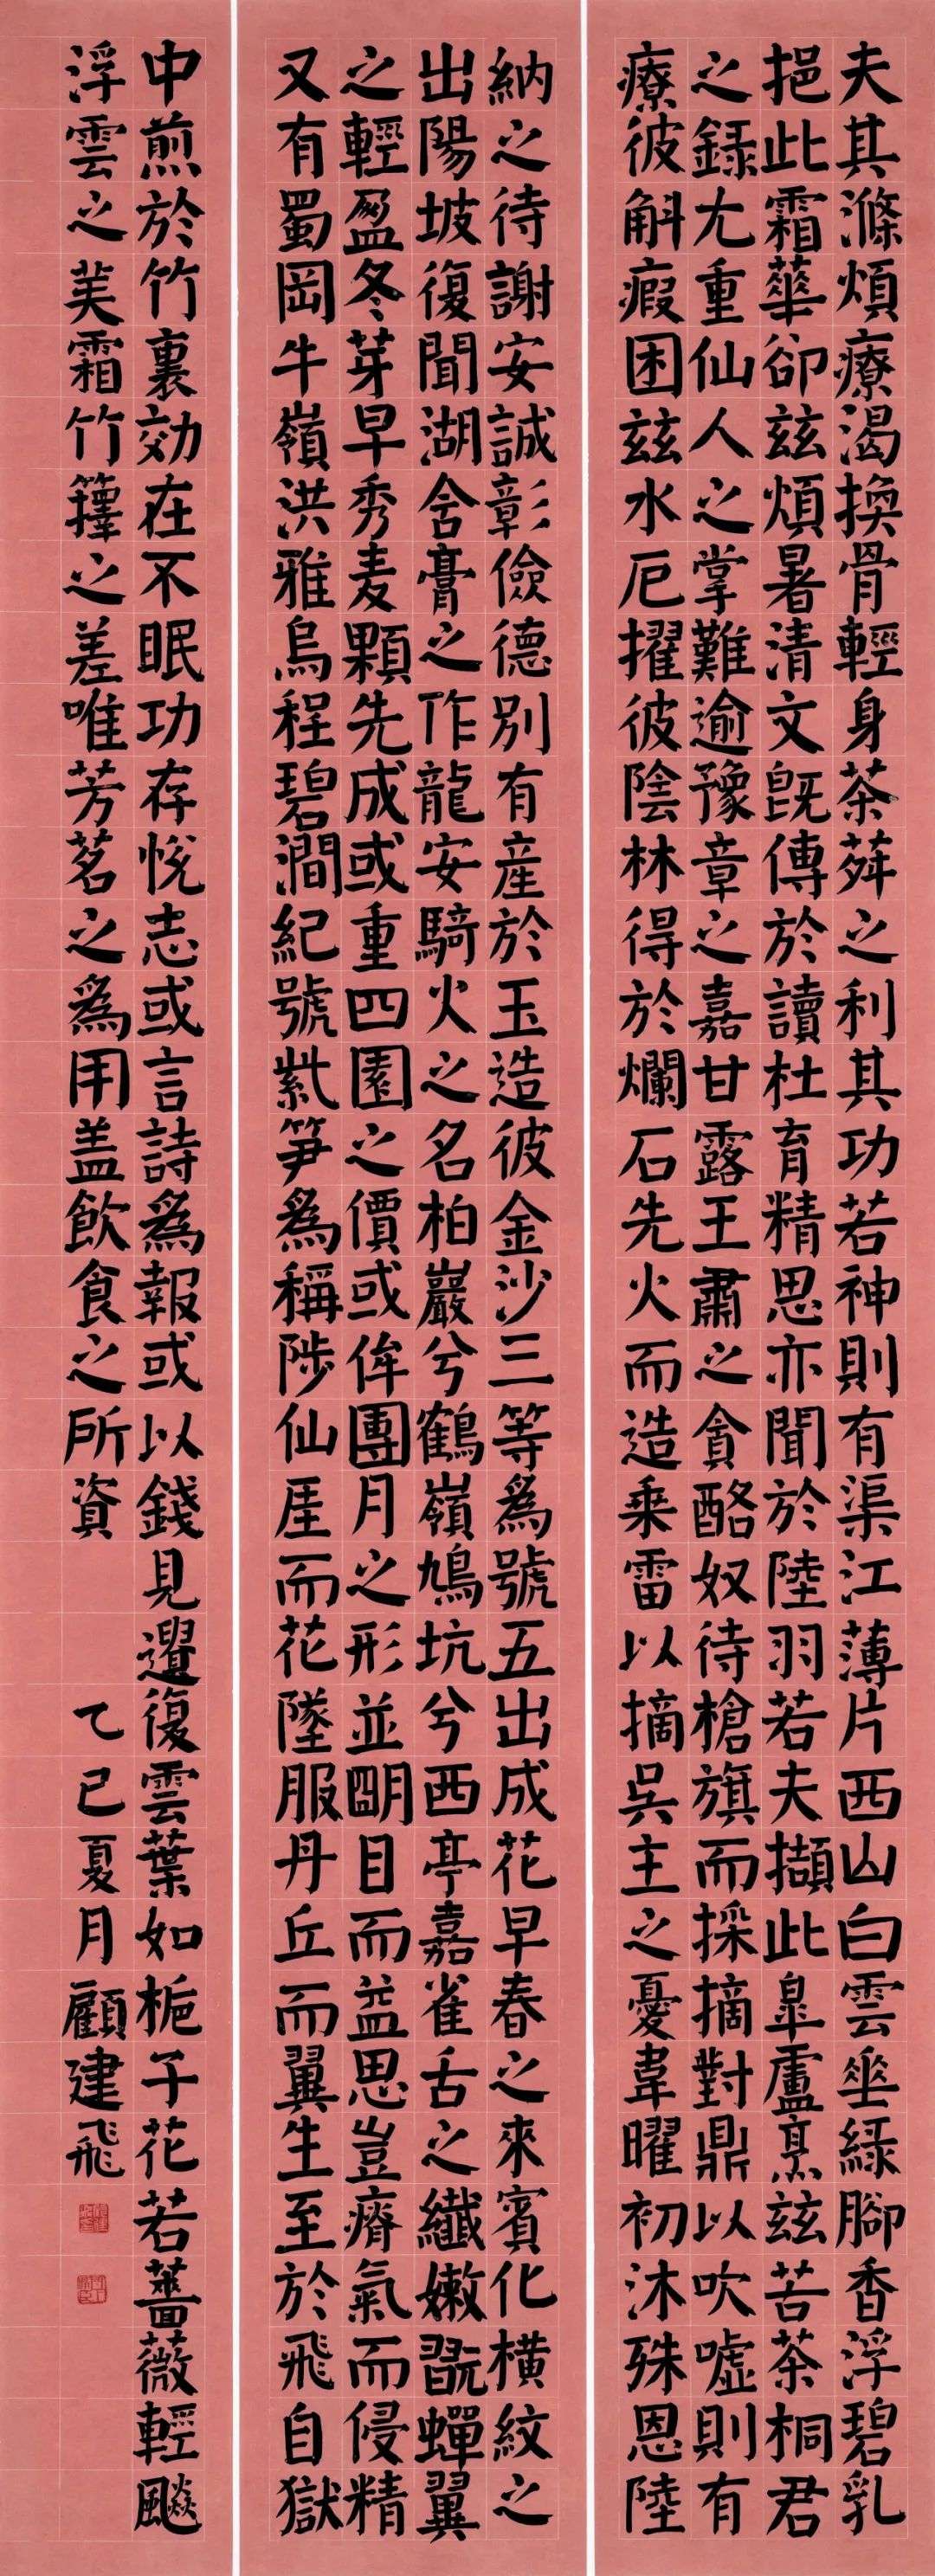 夫其滌煩療渴換骨輕身茶荈之利其功若神則有渠江薄片西山白雲垂綠腳香浮碧乳
挹此霜華卻茲煩暑清文既傳於讀杜育精思亦聞於陸羽若夫擷此皋盧烹茲苦茶桐君
之錄尤重仙人之掌難逾豫章之嘉甘露王肅之貪酪奴待槍旗而採摘對鼎以吹噓則有
療彼斛瘕困茲水厄擢彼陰林得於爛石先火而造乘雷以摘吳主之憂韋曜初沐殊恩陸
納之待謝安誠彰儉德別有產於玉造彼金沙三等為號五出成花早春之來賓化橫紋之
出陽坡復聞湖舍膏之作龍安騎火之名柏巖兮鶴嶺鳩坑兮西亭嘉雀舌之纖嫩翫蟬翼
之輕盈冬芽早秀麦顆先成或重四園之價或侔團月之形並明目而益思豈瘠氣而侵精
又有蜀岡牛嶺洪雅烏程碧澗紀號紫笋為稱陟仙厓而花墜服丹丘而翼生至於飛自獄
中煎於竹裏効在不眠功存悅志或言詩為報或以錢見遺復雲葉如梔子花若薔薇輕飈
浮雲之美霜竹籜之差唯芳茗之為用盖飲食之所資
乙巳夏月顧建飛